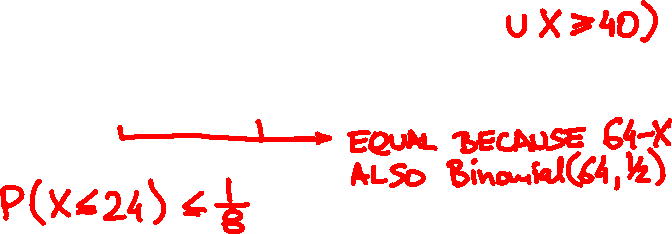 ∪ X ≥ 40)
EQUAL BECAUSE 64-X
ALSO Binomial(64, ½)
P(X ≤ 24) ≤ 1/8